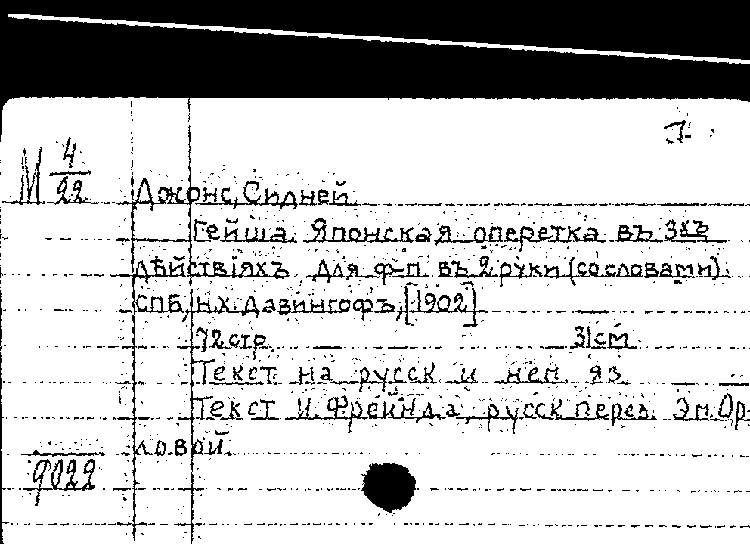 М 4/22
Джонс, Сидней.
Гейша. Японская оперетка въ 3хъ
дѣйствіяхъ Для ф-п. въ 2 руки (со словами).
СПБ, Н.Х. Давингофъ, [1902]
72 стр. 31 см.
Текст на русск и нем яз.
Текст И. Фрейнда, русск перев. Эм. Ор-
ловой.
9022